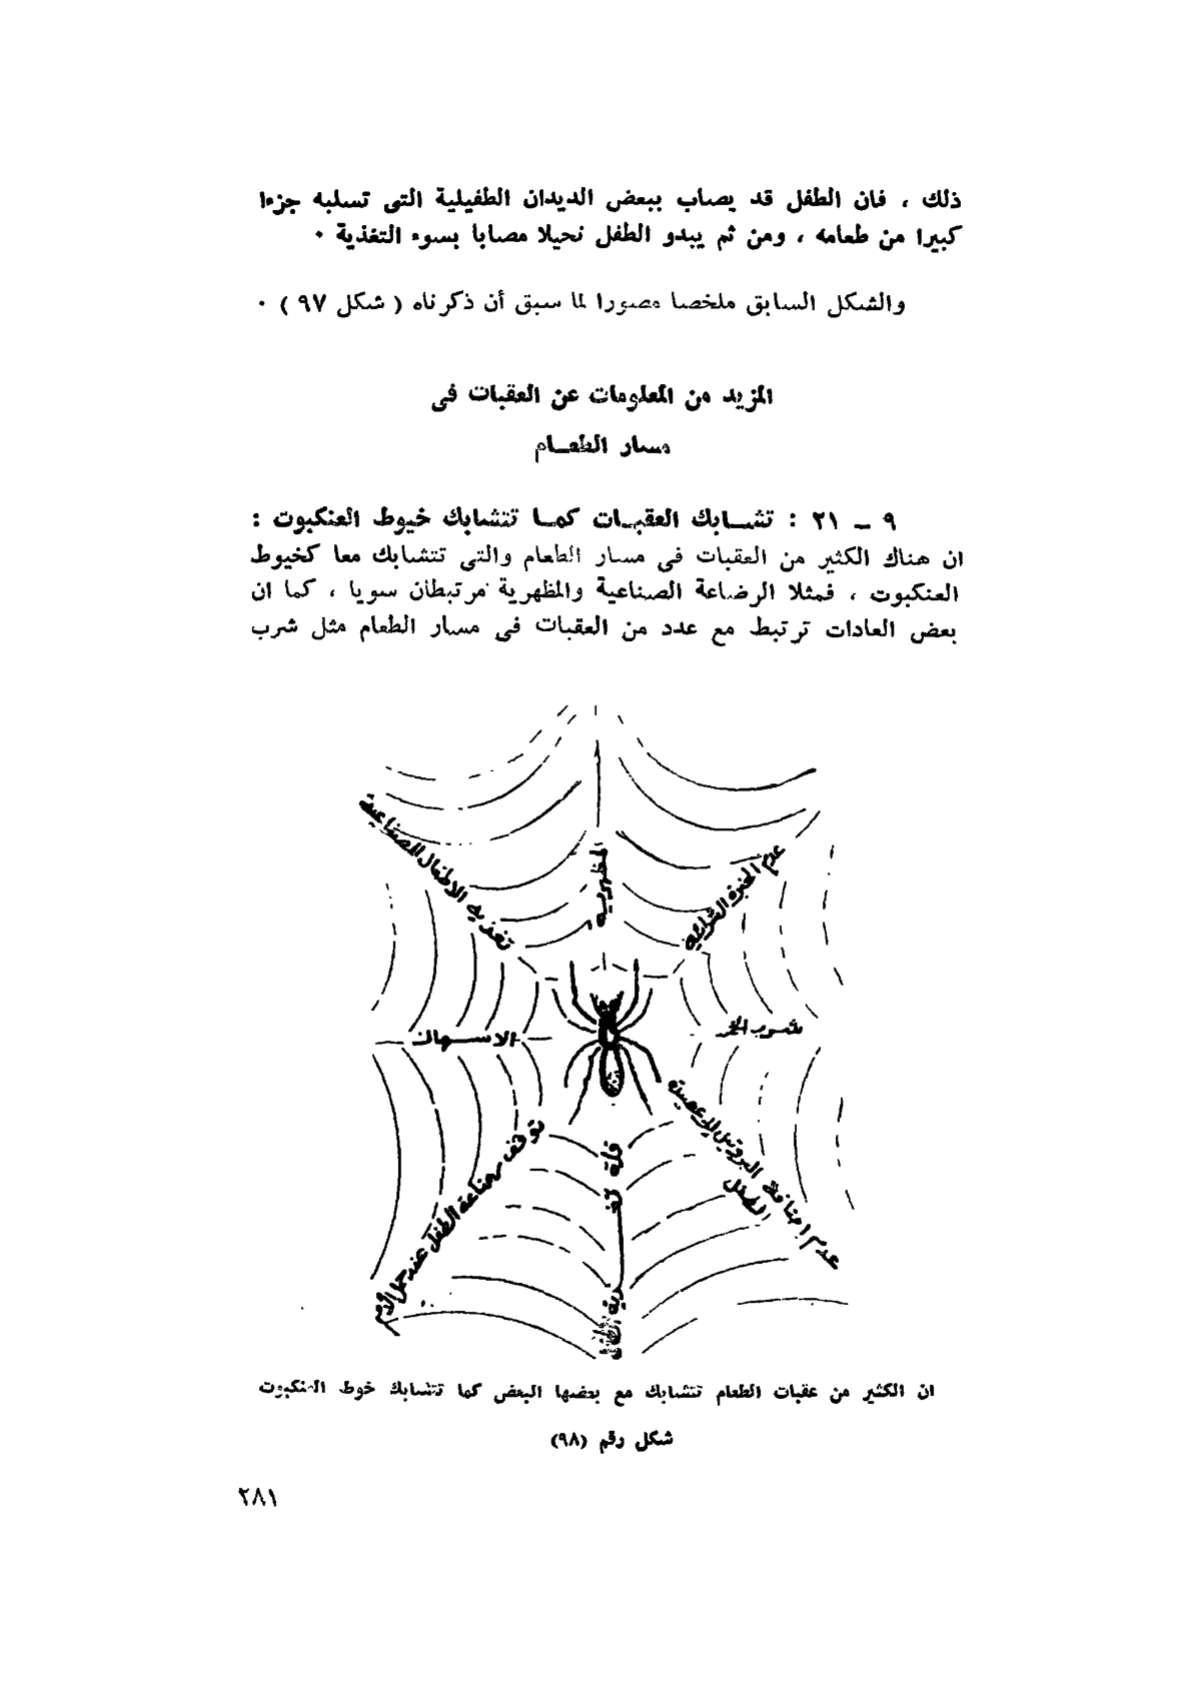 ذلك ، فان الطفل قد يصاب ببعض الديدان الطفيلية التى تسلبه جزءا
كبيرا من طعامه ، ومن ثم يبدو الطفل نحيلا مصابا بسوء التغذية ٠
والشكل السابق ملخصا مصورا لما سبق أن ذكرناه ( شكل ٩٧ ) ٠
المزيد من المعلومات عن العقبات فى
مسار الطعـــام
٩ ــ ٢١ : تشـــابك العقبـات كمـا تتشابك خيوط العنكبوت :
ان هناك الكثير من العقبات فى مسار الطعام والتى تتشابك معا كخيوط
العنكبوت ، فمثلا الرضاعة الصناعية والمظهرية مرتبطان سويا ، كما ان
بعض العادات ترتبط مع عدد من العقبات فى مسار الطعام مثل شرب
تغذيه الاطفال الصناعية
المظهريـــه
عدم الخبرة الشرائيه
الاســـهال
شـرب الخمر
توقف رضاعة الطفل عند حمل الأم
قلة تغذية الطفل
عدم اضافة البروتين لعصيدة
الطفل
ان الكثير من عقبات الطعام تتشابك مع بعضها البعض كما تتشابك خوط العنكبوت
شكل رقم (٩٨)
٢٨١